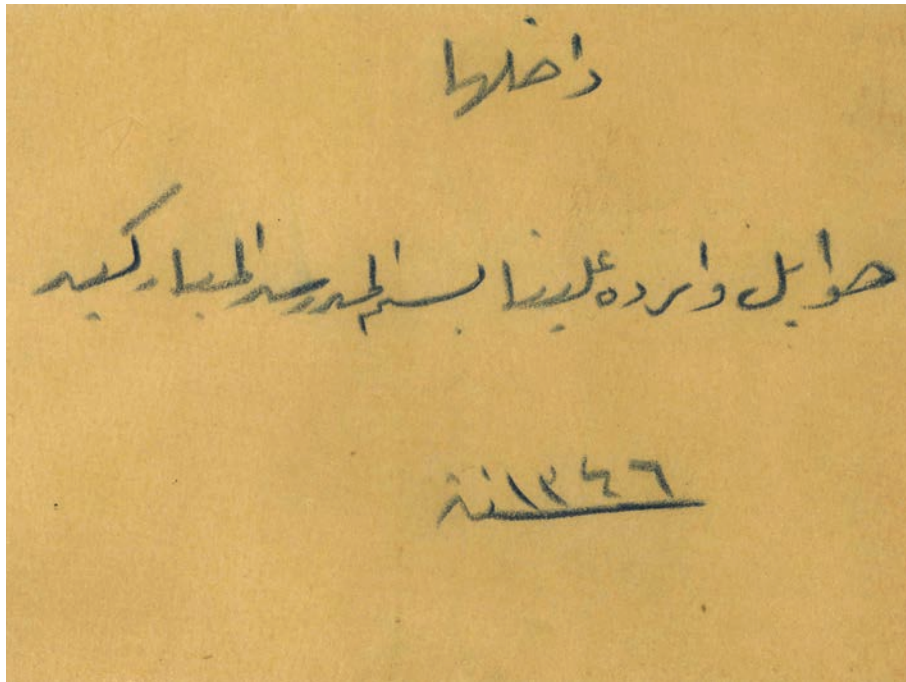 داخلها
حوايل وارده علينا بسم المدرسه المباركيه
١٣٤٦ سنة